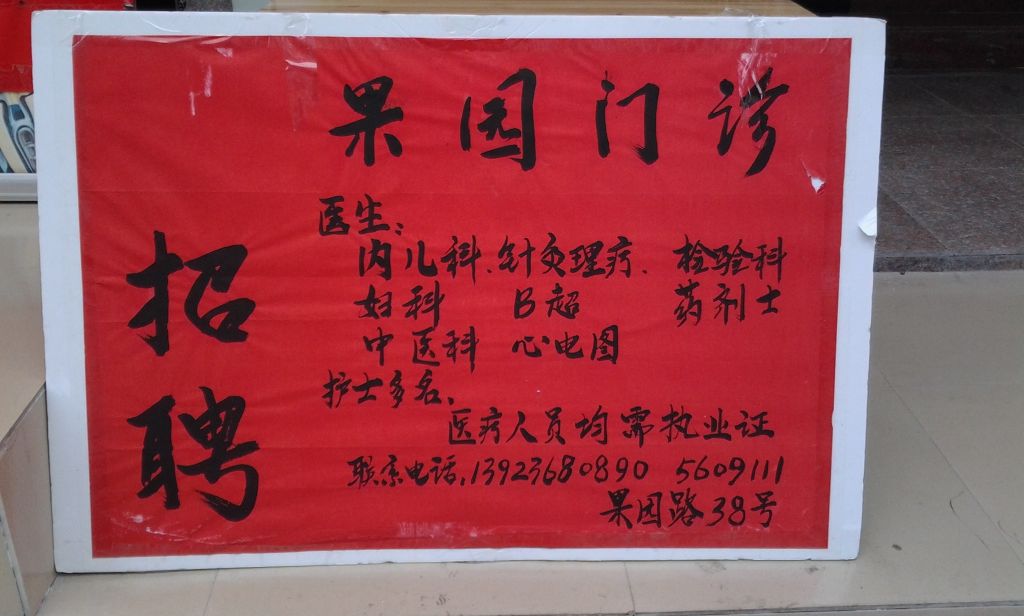 果园门诊
招聘
医生:
内儿科、针灸理疗、 检验科
妇科 B超 药剂士
中医科 心电图
护士多名、
医疗人员均需执业证
联系电话:13923680890 5609111
果园路38号